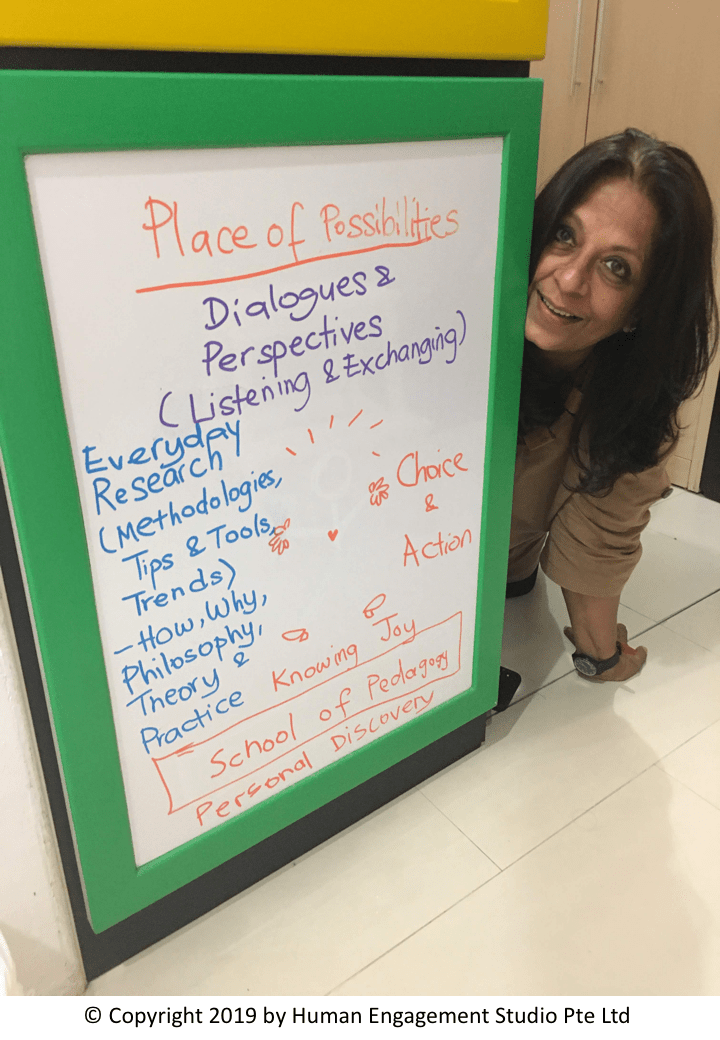 Place of Possibilities
Dialogues &
Perspectives
(Listening & Exchanging)
Everyday
Research
(Methodologies,
Tips & Tools,
Trends)
-How, Why,
Philosophy,
Theory &
Practice
Choice
&
Action
Knowing Joy
School of Pedagogy
Personal Discovery
© Copyright 2019 by Human Engagement Studio Pte Ltd